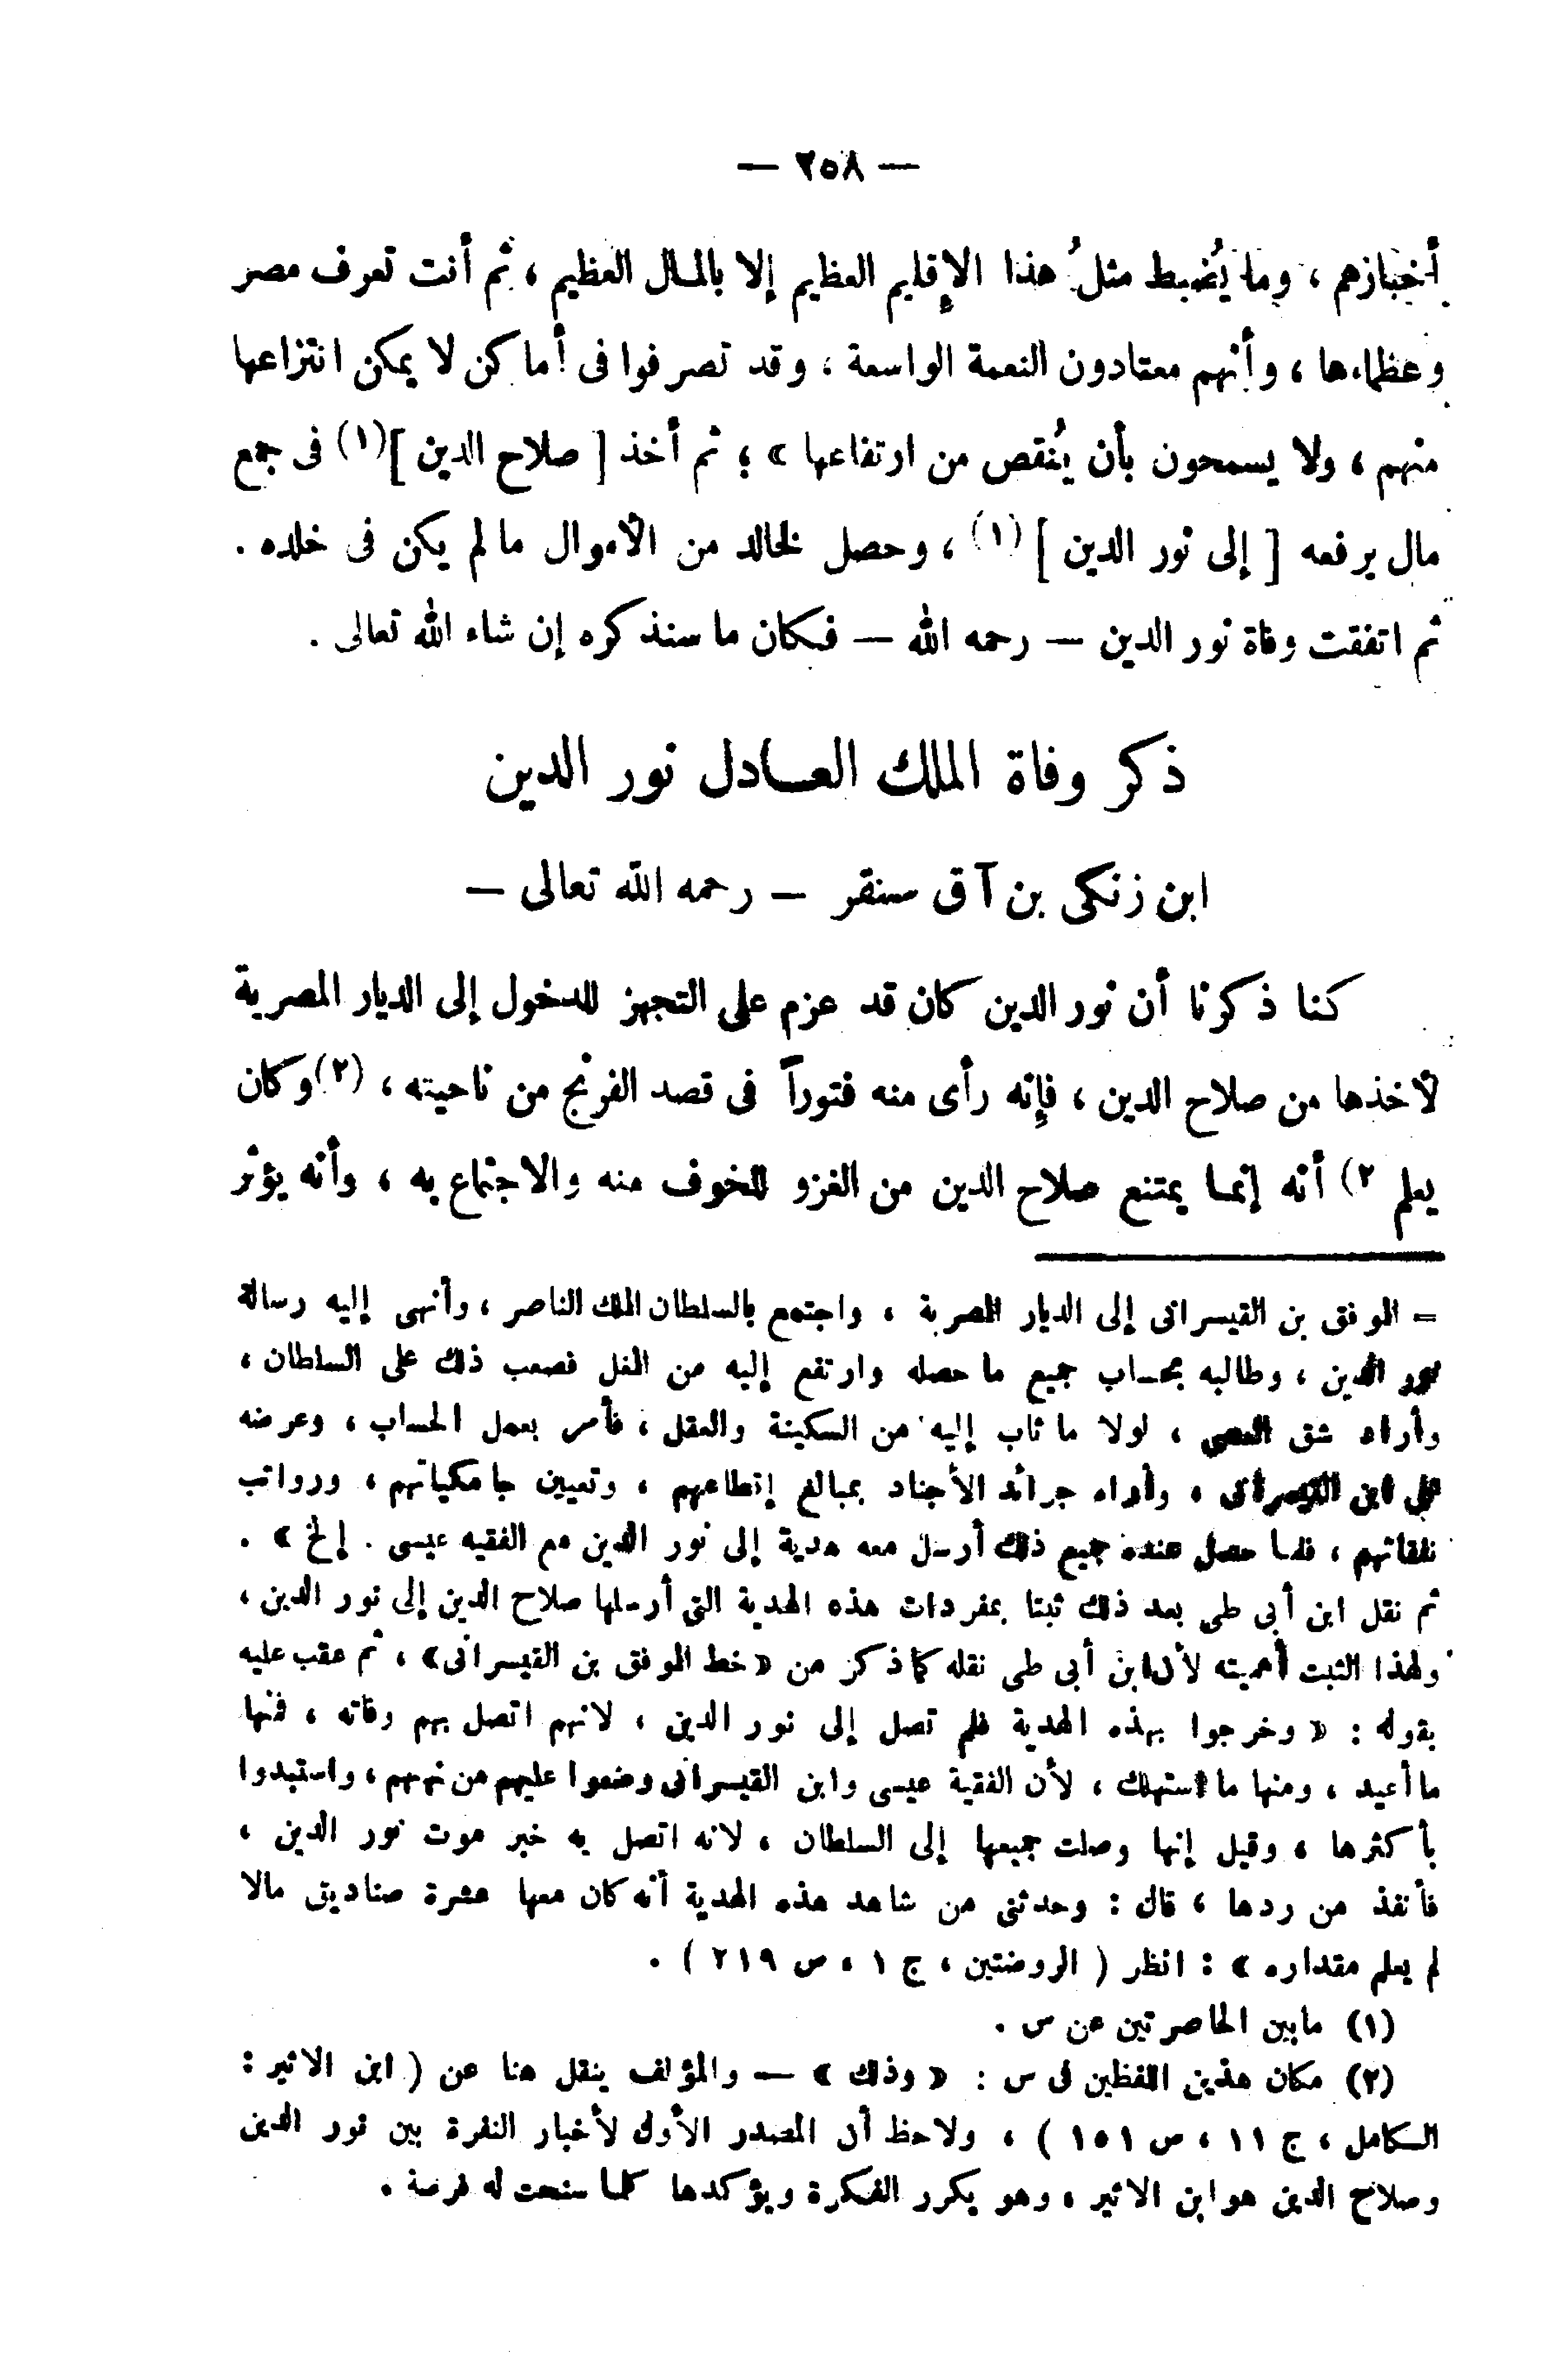 — ٢٥٨ —
أخبازهم ، وما يُضبط مثلُ هذا الإقليم العظيم إلا بالمال العظيم ، ثم أنت تعرف مصر
وعظماءها ، وأنهم معتادون النعمة الواسعة ، وقد تصرفوا فى أماكن لا يمكن انتزاعها
منهم ، ولا يسمحون بأن يُنقص من ارتفاعها » ؛ ثم أخذ [ صلاح الدين ](١) فى جمع
مال يرفعه [ إلى نور الدين ](١) ، وحصل لخالد من الأموال ما لم يكن فى خلده .
ثم اتفقت وفاة نور الدين — رحمه الله — فكان ما سنذكره إن شاء الله تعالى .
ذكر وفاة الملك العادل نور الدين
ابن زنكى بن آق سنقر — رحمه الله تعالى —
كنا ذكرنا أن نور الدين كان قد عزم على التجهز للدخول إلى الديار المصرية
لأخذها من صلاح الدين ، فإنه رأى منه فتوراً فى قصد الفرنج من ناحيته ، (٢)وكان
يعلم ٢) أنه إنما يمتنع صلاح الدين من الغزو للخوف منه والاجتماع به ، وأنه يؤثر
= الموفق بن القيسرانى إلى الديار المصرية ، واجتمع بالسلطان الملك الناصر ، وأنهى إليه رسالة
نور الدين ، وطالبه بحساب جميع ما حصله وارتفع إليه من المغل فصعب ذلك على السلطان ،
وأراد شق العصى ، لولا ما ثاب إليه من السكينة والعقل ، فأمر بعمل الحساب ، وعرضه
على ابن القيسرانى ، وأراه جرائد الأجناد بمبالغ إقطاعهم ، وتعيين جامكياتهم ، ورواتب
نفقاتهم ، فلما حصل عنده جميع ذلك أرسل معه هدية إلى نور الدين مع الفقيه عيسى . إلخ » .
ثم نقل ابن أبى طى بعد ذلك ثبتا بمفردات هذه الهدية التى أرسلها صلاح الدين إلى نور الدين ،
ولهذا الثبت أهميته لأن ابن أبى طى نقله كما ذكر من « خط الموفق بن القيسرانى » ، ثم عقب عليه
بقوله : « وخرجوا بهذه الهدية فلم تصل إلى نور الدين ، لانهم اتصل بهم وفاته ، فمنها
ما أعيد ، ومنها ما استهلك ، لأن الفقية عيسى وابن القيسرانى وضعوا عليهم من نهبهم ، واستبدوا
بأكثرها ، وقيل إنها وصلت جميعها إلى السلطان ، لانه اتصل به خبر موت نور الدين ،
فأنفذ من ردها ، قال : وحدثنى من شاهد هذه الهدية أنه كان معها عشرة صناديق مالا
لم يعلم مقداره » : انظر ( الروضتين ، ج ١ ، ص ٢١٩ ) .
(١) مابين الحاصرتين عن س .
(٢) مكان هذين اللفظين فى س : « وذلك » — والمؤلف ينقل هنا عن ( ابن الاثير :
الكامل ، ج ١١ ، ص ١٥١ ) ، ولاحظ أن المصدر الأول لأخبار النفرة بين نور الدين
وصلاح الدين هو ابن الاثير ، وهو يكرر الفكرة ويؤكدها كلما سنحت له فرصة .